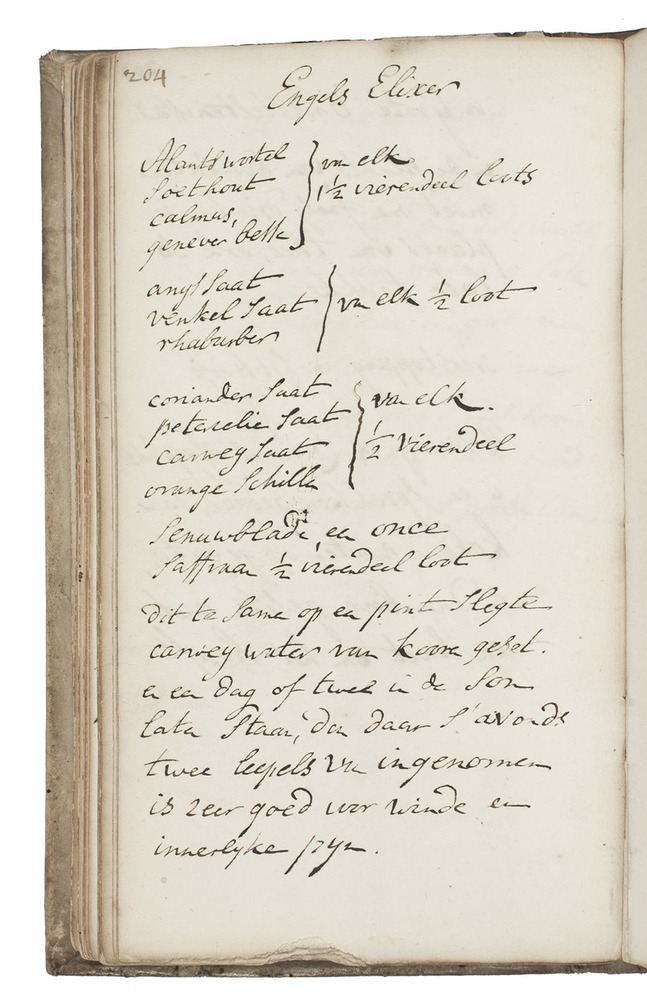 204
Engels Elixer
Alants wortel
Soethout
calmus,
genever besse
van elk
1½ vierendeel loots
anys saat
venkel saat
rhabarber
van elk ½ loot
coriander saat
petercelie saat
carwey saat
orange schille
van elk.
½ vierendeel
Senuwblade een once
Saffraan ½ vierendeel loot
dit te same op een pint slegte
carwey water van koorn geset.
en een dag of twee in de Son
laten staan, dan daar s'avonds
twee leepels van ingenomen
is zeer goed voor winde en
innerlyke pyn.